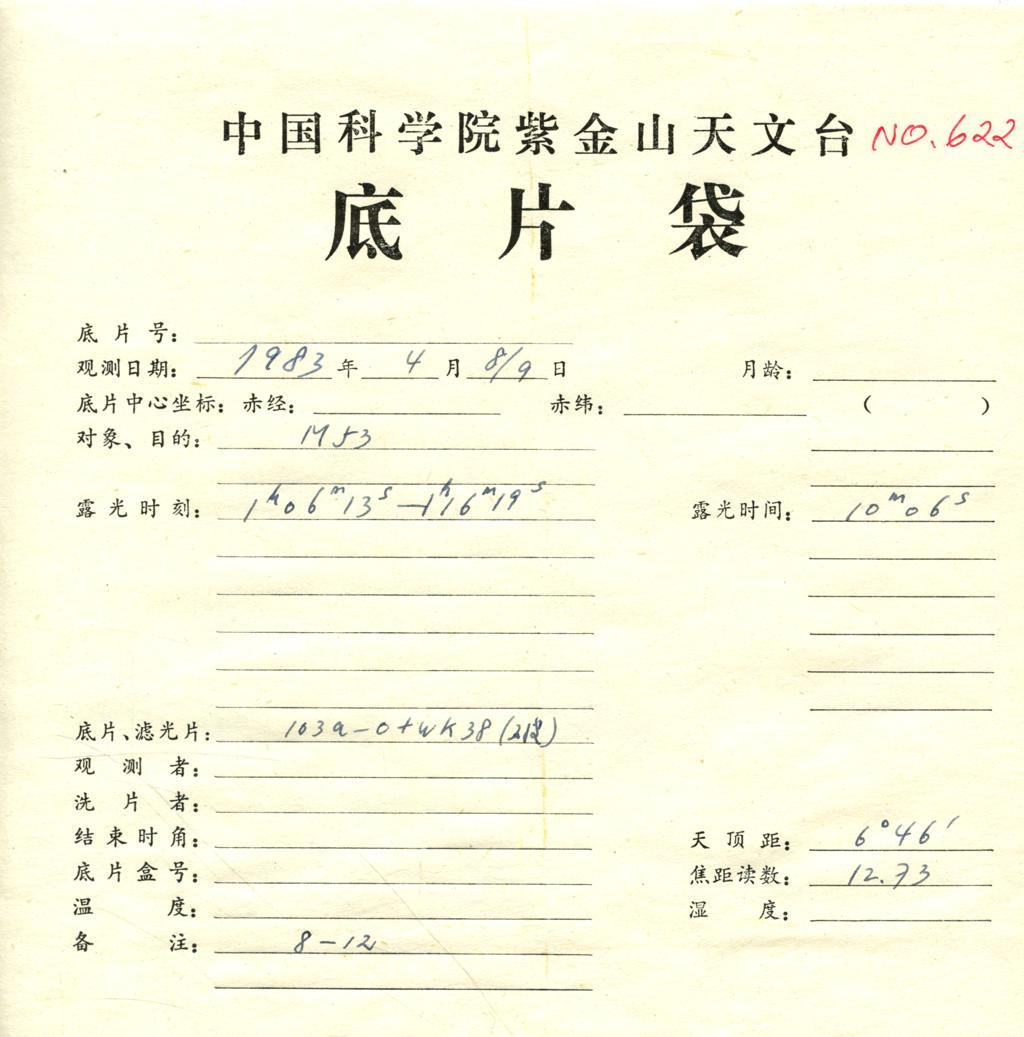 中国科学院紫金山天文台 NO.622
底片袋
底片号：
观测日期： 1983 年 4 月 8/9 日 月龄：
底片中心坐标：赤经： 赤纬： （ ）
对象、目的： M53
露光时刻： 1h06m13s—1h16m19s 露光时间： 10m06s
底片、滤光片： 103a-O+WK38
观测者：
洗片者：
结束时角： 天顶距： 6°46′
底片盒号： 焦距读数： 12.73
温度： 湿度：
备注： 8-12